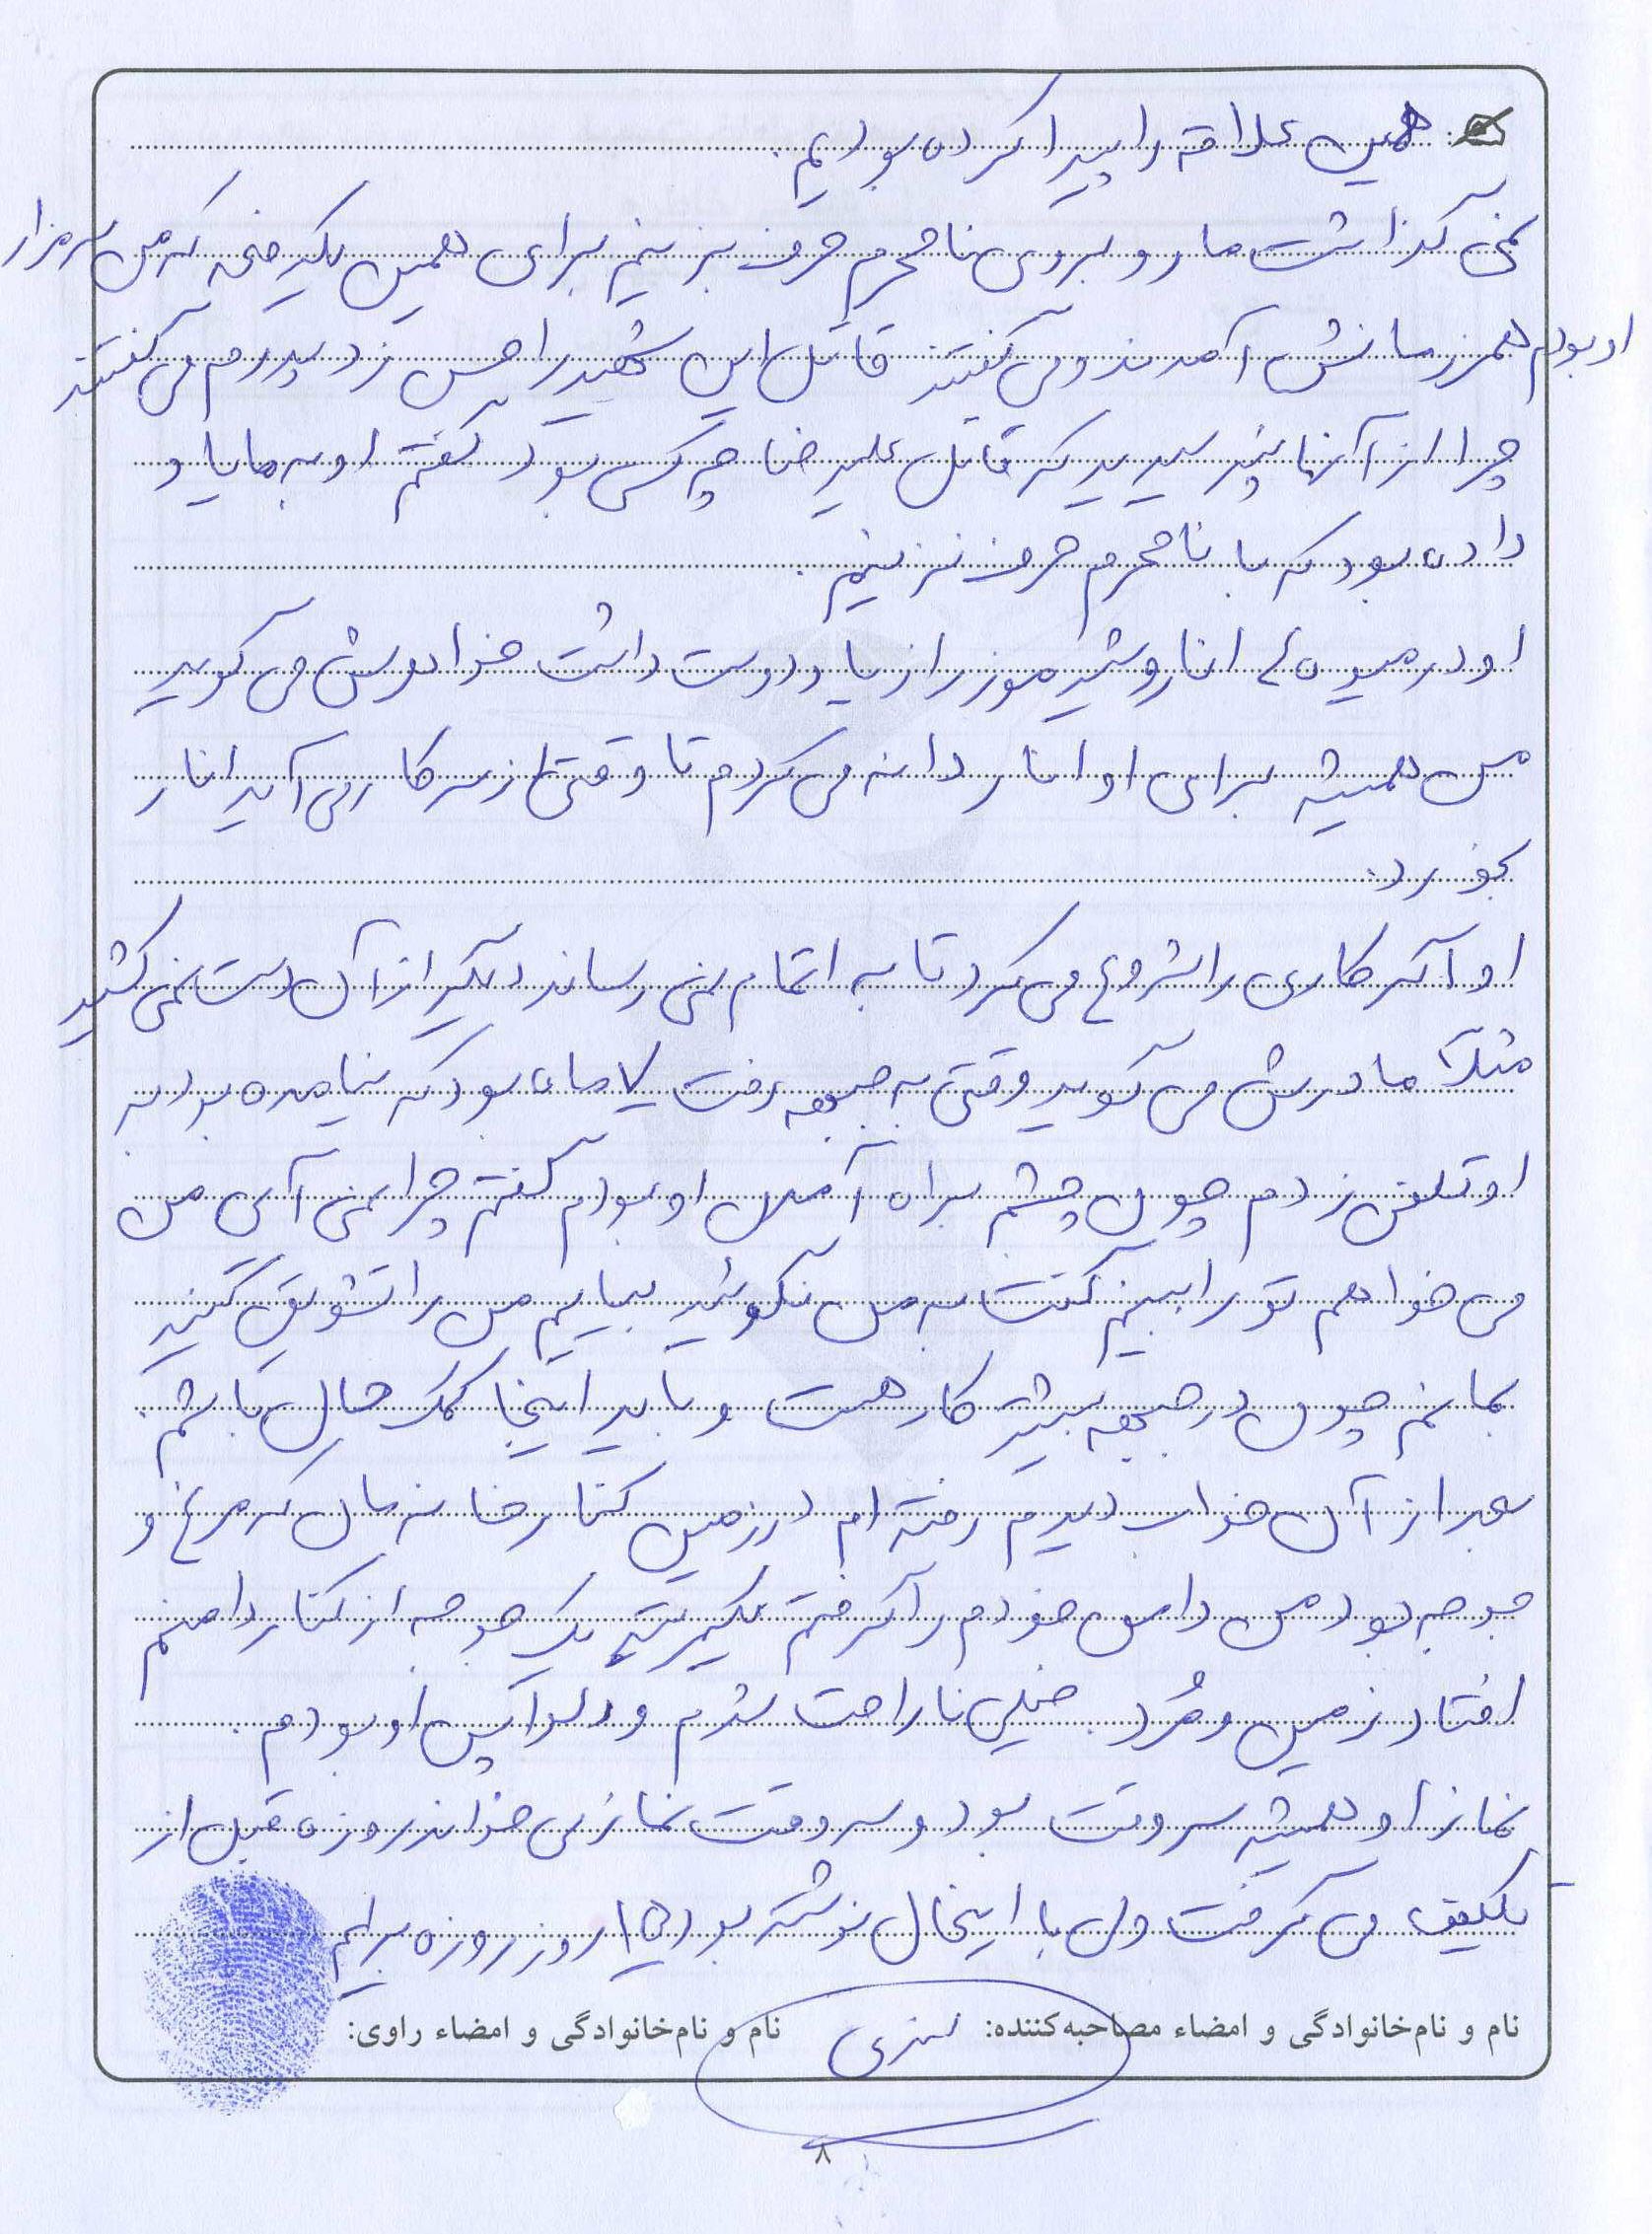 همین علاقه را پیدا کرده بودیم.
نمی گذاشت ما رو بروی نامحرم حرف بزنیم برای همین یکدفعه که من سر مزار
او بودم همرزمانش آمدند و می گفتند قاتل این شهید را حس زد پدرم می گفتند
چرا از آنها نپرسیدید که قاتل علیرضا چه کسی بود گفتم او به ما یاد
داده بود که با نامحرم حرف نزنیم.
او در میوه ها انار و شیر موز را زیاد دوست داشت خواهرش می گوید
من همیشه برای او انار دانه می کردم تا وقتی از سر کار می آید انار
بخورد.
او اگر کاری را شروع می کرد تا به اتمام نمی رساند دیگر از آن دست نمی کشید
مثلاً مادرش می گوید وقتی به جبهه رفت ۷ ماه بود که نیامده بود به
او تلفن زدم چون چشم براه آمدن او بودم گفتم چرا نمی آئی من
می خواهم تو را ببینم گفت به من نگوئید بیایم من را تشویق کنید
بمانم چون در جبهه بیشتر کار هست و باید اینجا کمک حال باشم.
بعد از آن خواب دیدم رفته ام در زمین کنار خانه مان که مرغ و
جوجه بود من دامن خودم را گرفتم یک جوجه از کنار دامنم
افتاد زمین و مُرد. خیلی ناراحت شدم و دلواپس او بودم.
نماز او همیشه سر وقت بود و سر وقت نماز می خواند روزه قبل از
تکلیف می گرفت ولی با اینحال نوشته بود ۱۵ روز روزه برایم
نام و نام‌خانوادگی و امضاء مصاحبه‌کننده:
نام و نام‌خانوادگی و امضاء راوی:
۸